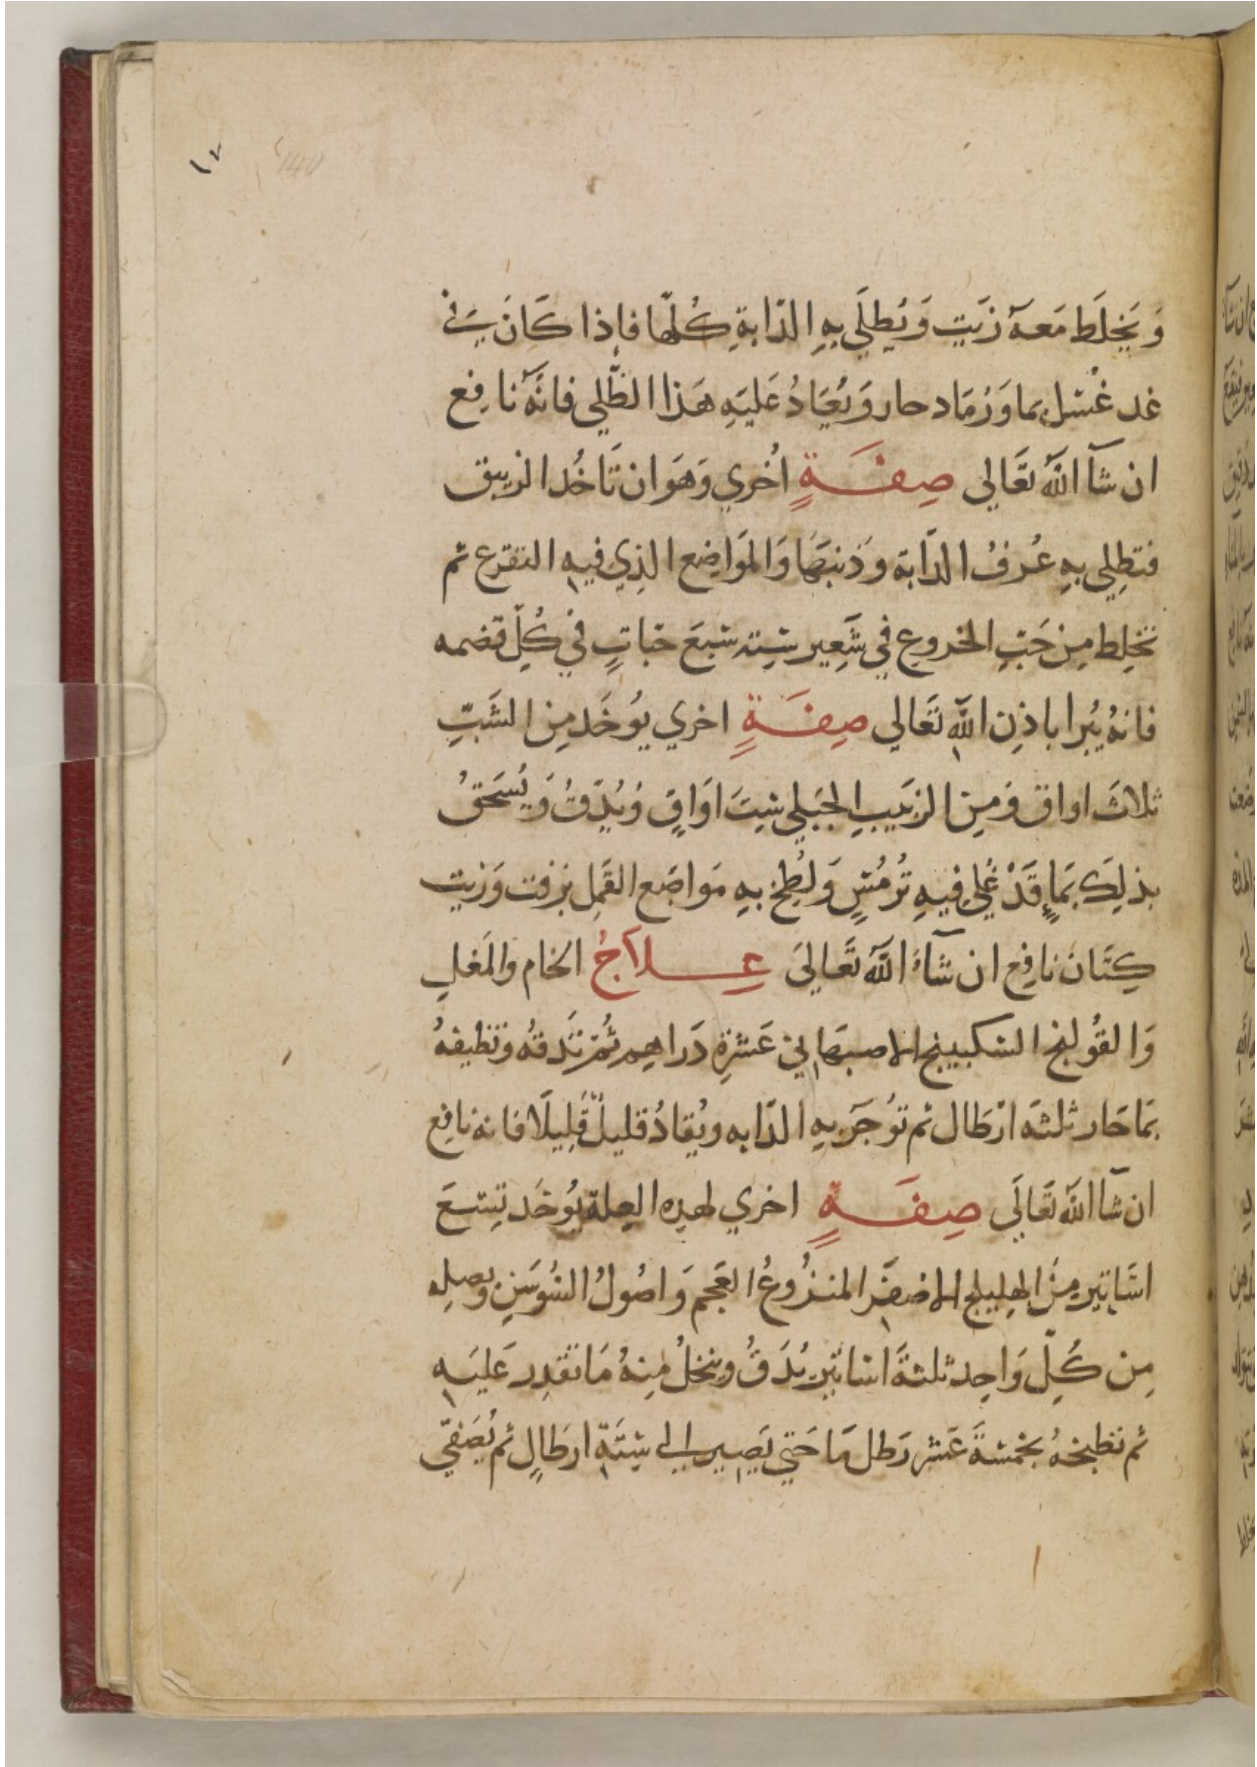 وَيَخلَط مَعهَ زَيت وَيُطلَي بِهِ الدّابةِ كُلّها فاِذا كَانَ في
غد غُسَل بما وَرَمَاد حار وَيُعَادُ عَليَهِ هَذا الطَّلي فانَّهُ نافِع
ان شآ اللّه تعَالي صِفَةٍ اُخري وَهوَ ان تَاخُذ الزيبق
فتطلِي بهِ عُرفُ الدّابة وَذنبَهَا وَالموَاضِع الذِي فيهِ التقرع ثم
تخِلط مِن حَبّ الخروع في شَعِير سَبعَ حَباتٍ في كُلّ قضمه
فانهُ يُبرا باذنِ اللّه تعَالي صِفَةٍ اخري يوُخَد مِن الشَبّ
ثلاثَ اواق وَمِن الزبَيب الجَبَلي سِتَ اَوَاقٍ وَيُدَقُ وَيُسَحَقُ
بذلِكَ بمَاءٍ قَدْ غُلي فِيهِ تُرمُسٍ وَلُطِخ بهِ مَواضَع القَمِل بزفت وَزيت
كِتَان نافِع ان شآءَ اللّه تعَاليَ عِلاَجُ الخام والمَغلِ
وَالقوُلنج السَكبينج الاصبهَاني عَشرةِ دَراهِم ثُمّ تَدقهُ وتظيفهُ
بمَا حَار ثلثَه ارْطَال ثم توُجَر بهِ الدّابه ويُقادُ قليلٌ قلِيلًا فانه نافِع
ان شآ اللّه تعَالَي صِفَةٍ اخري لهدِه العِلة يوُخَد تِسَعَ
اسَاتِير مِنَ الهِليلج الاصفَر المنزُوعُ العَجِم وَاصُولُ السُوسَنِ
مِن كُلّ وَاحِد ثلثةَ اسَاتير يُدَقُ وينخلُ مِنهُ مَا تقدِر عَليَهِ
ثم تطبخهُ بخمسَةَ عَشر رَطل مَا حَتي يَصِير الي سِتَةِ ارطَالٍ ثم يُصَفّي